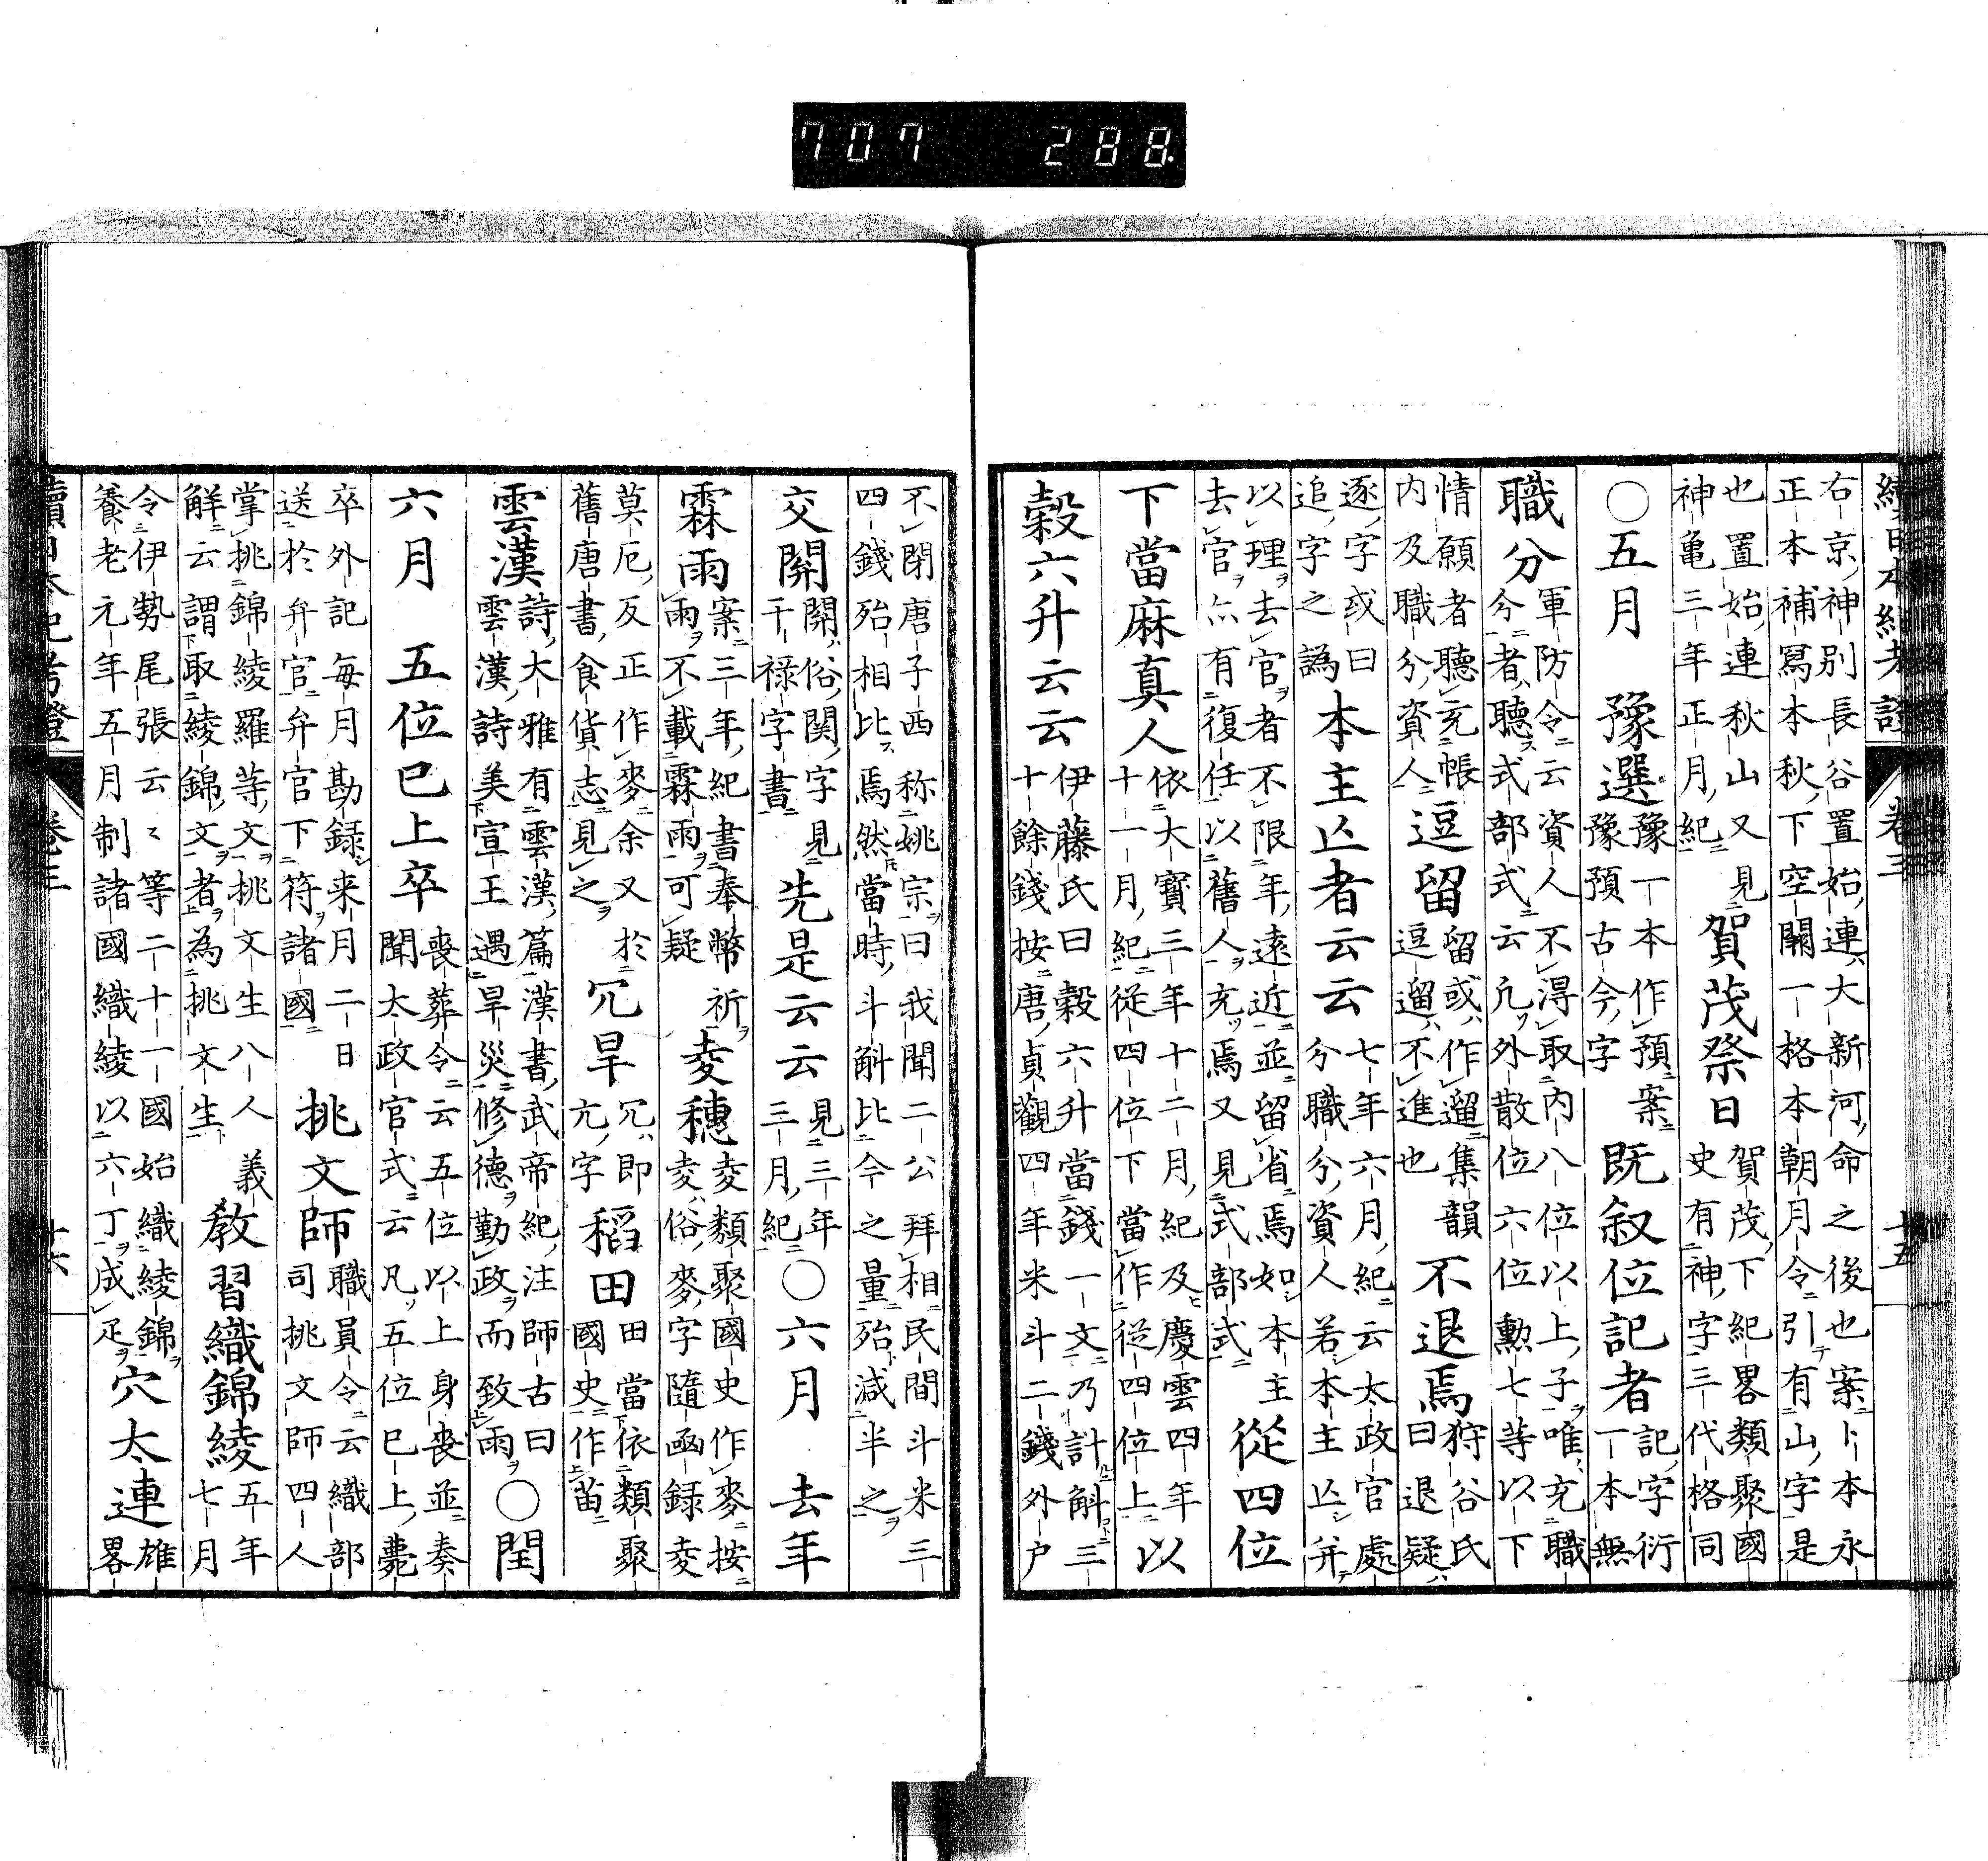 707 288.
續日本紀考證 卷三 十五
右京神別長谷置始連ハ大新河命之後也案卜本永
正本補寫本秋下空闕一格本朝月令引テ有山字是
也置始連秋山又見
神亀三年正月紀
賀茂祭日
賀茂下紀畧類聚國
史有神字三代格同
〇五月 豫選
豫一本作預案
豫預古今字
既叙位記者
記字衍
一本無
職分
軍防令云資人不得取内八位以上子ヲ唯充職
分者聴ス式部式云凡ソ外散位六位勲七等以下
情願者聴充帳
内及職分資人
逗留
留或ハ作遛集韻
逗遛ハ不進也
不退焉
狩谷氏
曰退疑ハ
逐字或曰
追字之譌
本主亾者云云
七年六月紀云太政官處
分職分資人若シ本主亾シ并テ
以理ヲ去官ヲ者不限年遠近並留省焉如シ本主
去官ヲ亦有復任以舊人ヲ充ツ焉又見式部式
從四位
下當麻真人
依大寶三年十二月紀及ヒ慶雲四年
十一月紀從四位下當作從四位上
以
穀六升云云
伊藤氏曰穀六升當錢一文乃計斛三
十餘錢按唐貞觀四年米斗二錢外户
不閉唐子西称姚宗ヲ曰我聞二公拜相民間斗米三
四錢殆相比ス焉然𪜈當時斗斛比今之量殆減半之ヲ
交關
關ハ俗関字見
干禄字書
先是云云
見三年
三月紀
〇六月 去年
霖雨
案三年紀書奉幣祈
雨ヲ不載霖雨ヲ可疑
麦穗
麦類聚國史作麥按
麦ハ俗麥字隨函録麦
莫厄反正作麥余又於
舊唐書食貨志見之ヲ
冗旱
冗ハ即
亢字
稻田
田當依類聚
國史作苗
雲漢
詩大雅有雲漢篇漢書武帝紀注師古曰
雲漢詩美宣王遇旱災修德ヲ勤政ヲ而致雨ヲ
〇閏
六月 五位已上卒
喪葬令云五位以上身喪並奏
聞太政官式云凡ソ五位已上薨
卒外記毎月勘録シ来月二日
送於弁官弁官下符ヲ諸國
挑文師
職員令云織部
司挑文師四人
掌挑錦綾羅等文ヲ挑文生八人義
解云謂取綾錦文ヲ者ヲ為挑文生
教習織錦綾
五年
七月
令伊勢尾張云々等二十一國始織綾錦ヲ
養老元年五月制諸國織綾以六丁ヲ成疋ヲ
穴太連
雄
畧
續日本紀考證 卷三 十六